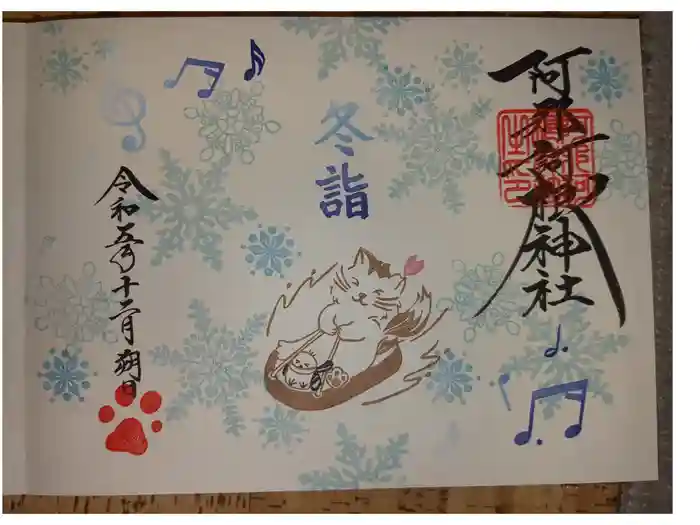 阿那訶根神社
冬詣
令和五年十二月朔日